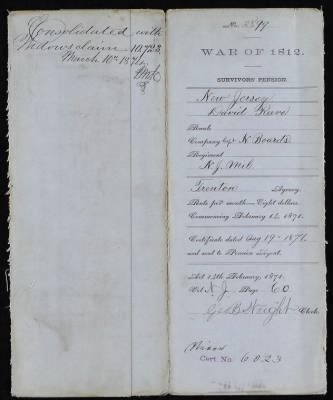 Consolidated with
Widows claim 10,723,
March 10th 187
No. 2899
WAR OF 1812.
SURVIVORS' PENSION.
New Jersey
David
Rank
Company Capt N Boards
Regiment
N.J. Mil.
Trenton Agency.
Rate per month, Eight dollars
Commencing February 14, 1871.
Certificate dated Aug 19 - 1871.
and sent to Pension Agent.
Act 14th February, 1871.
Vol. N. J. Page 60
Geo B Wright Clerk.
Cert. No. 6023